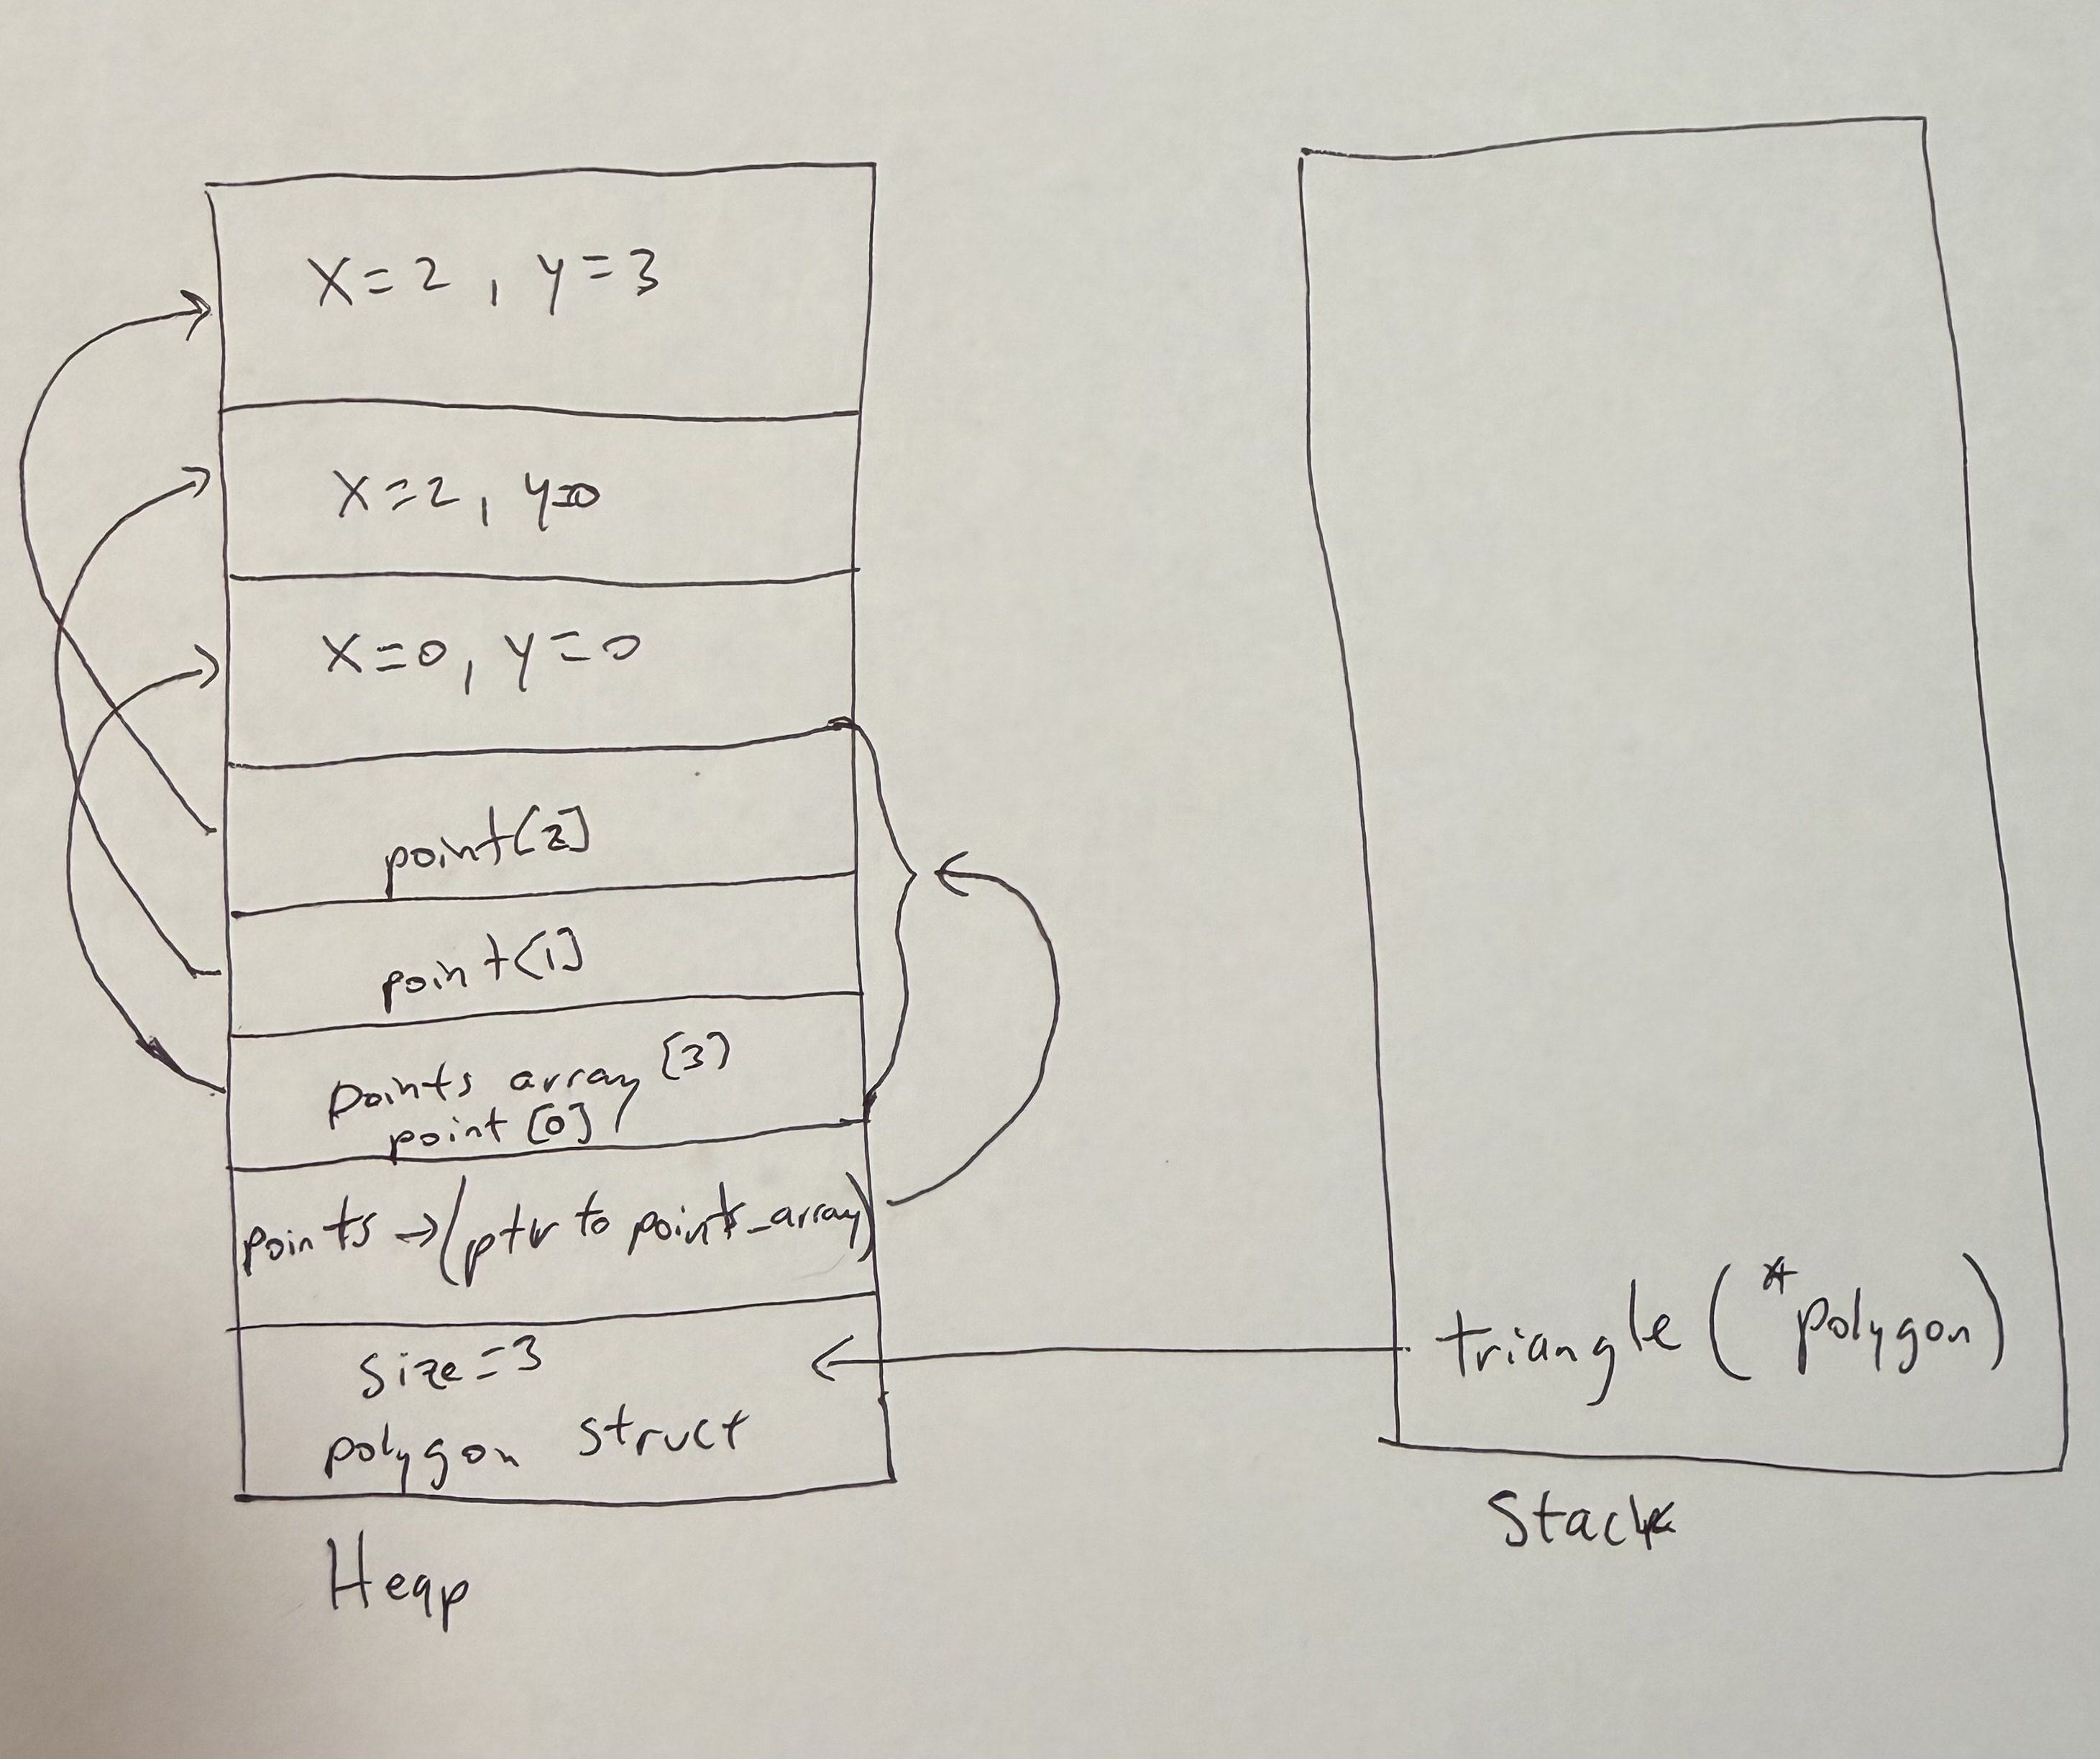 X=2, y=3
X=2, y=0
X=0, y=0
point[2]
point[1]
points array [3]
point [0]
points → (ptr to points_array)
size=3
polygon struct
Heap
triangle (*polygon)
Stack